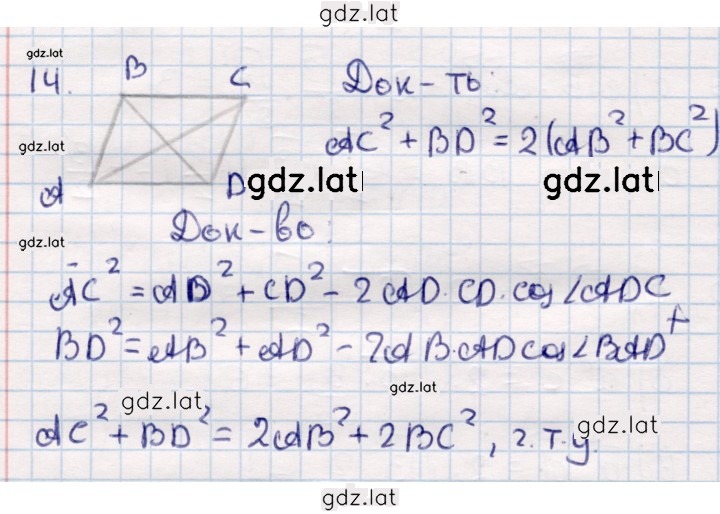 gdz.lat
gdz.lat
14. B C Док-ть:
AC² + BD² = 2(AB² + BC²)
gdz.lat
A D gdz.lat gdz.lat
Док-во:
gdz.lat
AC² = AD² + CD² - 2AD·CD·cos∠ADC
+
BD² = AB² + AD² - 2AB·AD cos∠BAD
gdz.lat gdz.lat
AC² + BD² = 2AB² + 2BC², ч.т.у. gdz.lat
gdz.lat